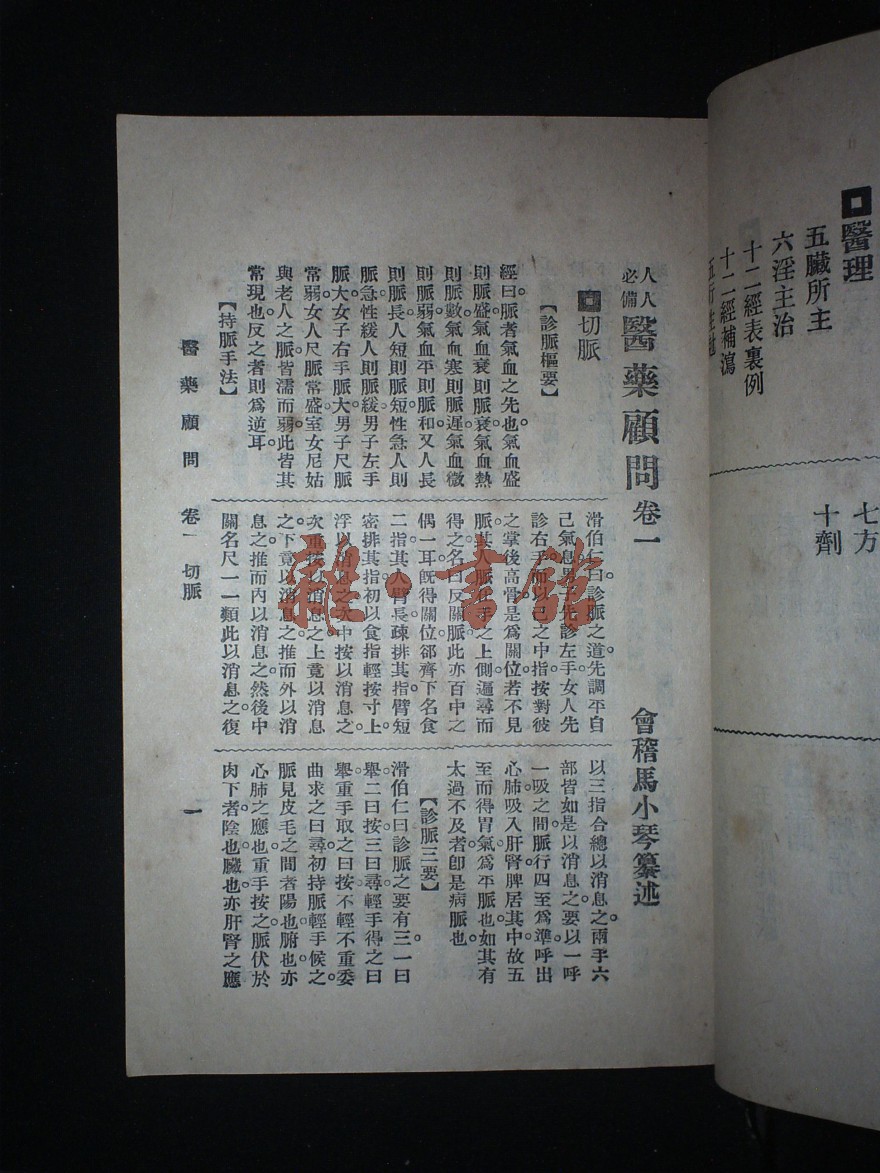 醫理
五臟所主
六淫主治
十二經表裏例
十二經補瀉
七方
十劑
人人必備 醫藥顧問 卷一
會稽馬小琴纂述
切脈
【診脈樞要】
經曰。脈者氣血之先也。氣血盛
則脈盛。氣血衰則脈衰。氣血熱
則脈數。氣血寒則脈遲。氣血微
則脈弱。氣血平則脈和。又人長
則脈長。人短則脈短。性急人則
脈急。性緩人則脈緩。男子左手
脈大。女子右手脈大。男子尺脈
常弱。女人尺脈常盛。室女尼姑
與老人之脈。皆濡而弱。此皆其
常現也。反之者則爲逆耳。
【持脈手法】
滑伯仁曰。診脈之道。先調平自
己氣息。男先診左手。女人先
診右手。而以己之中指。按對彼
之掌後高骨。是爲關位。若不見
脈。其人脈在手之上側。遍尋而
得之。名曰反關脈。此亦百中之
偶一耳。旣得關位。郤齊下名食
二指。其人臂長。疎排其指。臂短
密排其指。初以食指輕按寸上。
浮以消息之。次中按以消息之。
次重按以消息之。上竟以消息
之。下竟以消息之。推而外以消
息之。推而內以消息之。然後中
關名尺。一一類此以消息之。復
以三指合總以消息之。兩手六
部皆如是以消息之。要以一呼
一吸之間。脈行四至爲準。呼出
心肺。吸入肝腎。脾居其中。故五
至而得胃氣。爲平脈也。如其有
太過不及者。卽是病脈也。
【診脈三要】
滑伯仁曰。診脈之要有三。一曰
舉。二曰按。三曰尋。輕手得之曰
舉。重手取之曰按。不輕不重。委
曲求之曰尋。初持脈輕手候之。
脈見皮毛之間者。陽也。腑也。亦
心肺之應也。重手按之。脈伏於
肉下者。陰也。臟也。亦肝腎之應
醫藥顧問 卷一 切脈
一
雜·書館